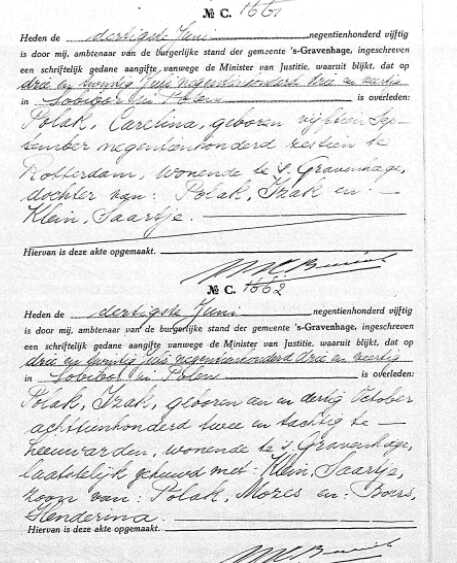 № C. 1661
Heden de dertigste Juni negentienhonderd vijftig
is door mij, ambtenaar van de burgerlijke stand der gemeente 's-Gravenhage, ingeschreven
een schriftelijk gedane aangifte vanwege de Minister van Justitie, waaruit blijkt, dat op
drie en twintig Juli negentienhonderd drie en veertig
in Sobibor in Polen is overleden:
Polak, Carolina, geboren vijftien Sep-
tember negentienhonderd zestien te
Rotterdam, wonende te 's Gravenhage,
dochter van: Polak, Izak en: —
Klein, Saartje.
Hiervan is deze akte opgemaakt.
№ C. 1662
Heden de dertigste Juni negentienhonderd vijftig
is door mij, ambtenaar van de burgerlijke stand der gemeente 's-Gravenhage, ingeschreven
een schriftelijk gedane aangifte vanwege de Minister van Justitie, waaruit blijkt, dat op
drie en twintig Juli negentienhonderd drie en veertig
in Sobibor in Polen is overleden:
Polak, Izak, geboren een en dertig October
achttienhonderd twee en tachtig te —
Leeuwarden, wonende te 's Gravenhage,
laatstelijk gehuwd met: Klein, Saartje,
zoon van: Polak, Mozes en: Boers,
Henderina.
Hiervan is deze akte opgemaakt.